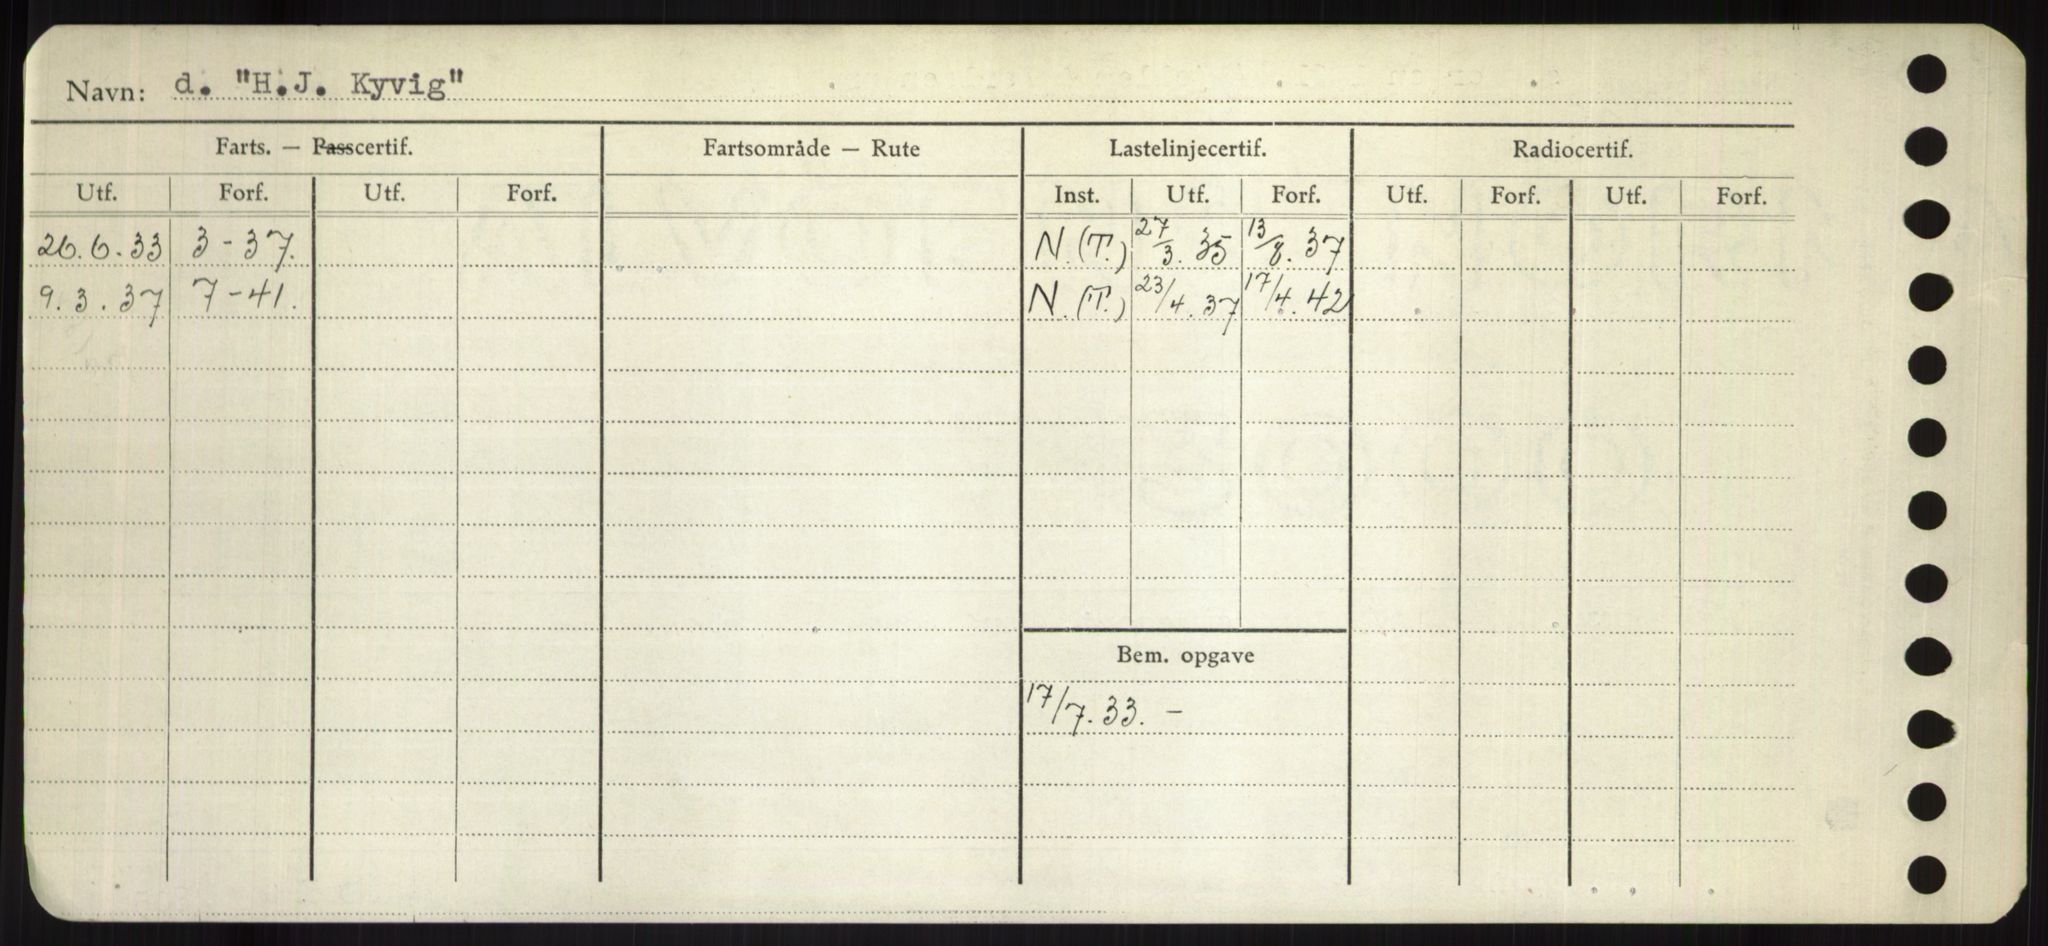 Navn: d. "H.J. Kyvig"
Farts. — Passcertif. Fartsområde — Rute Lastelinjecertif. Radiocertif.
Utf. Forf. Utf. Forf. Inst. Utf. Forf. Utf. Forf. Utf. Forf.
26.6.33 3-37. N.(T.) 27/3.35 13/8.37
9.3.37 7-41. N.(T.) 23/4.37 17/4.42
Bem. opgave
17/7.33. -